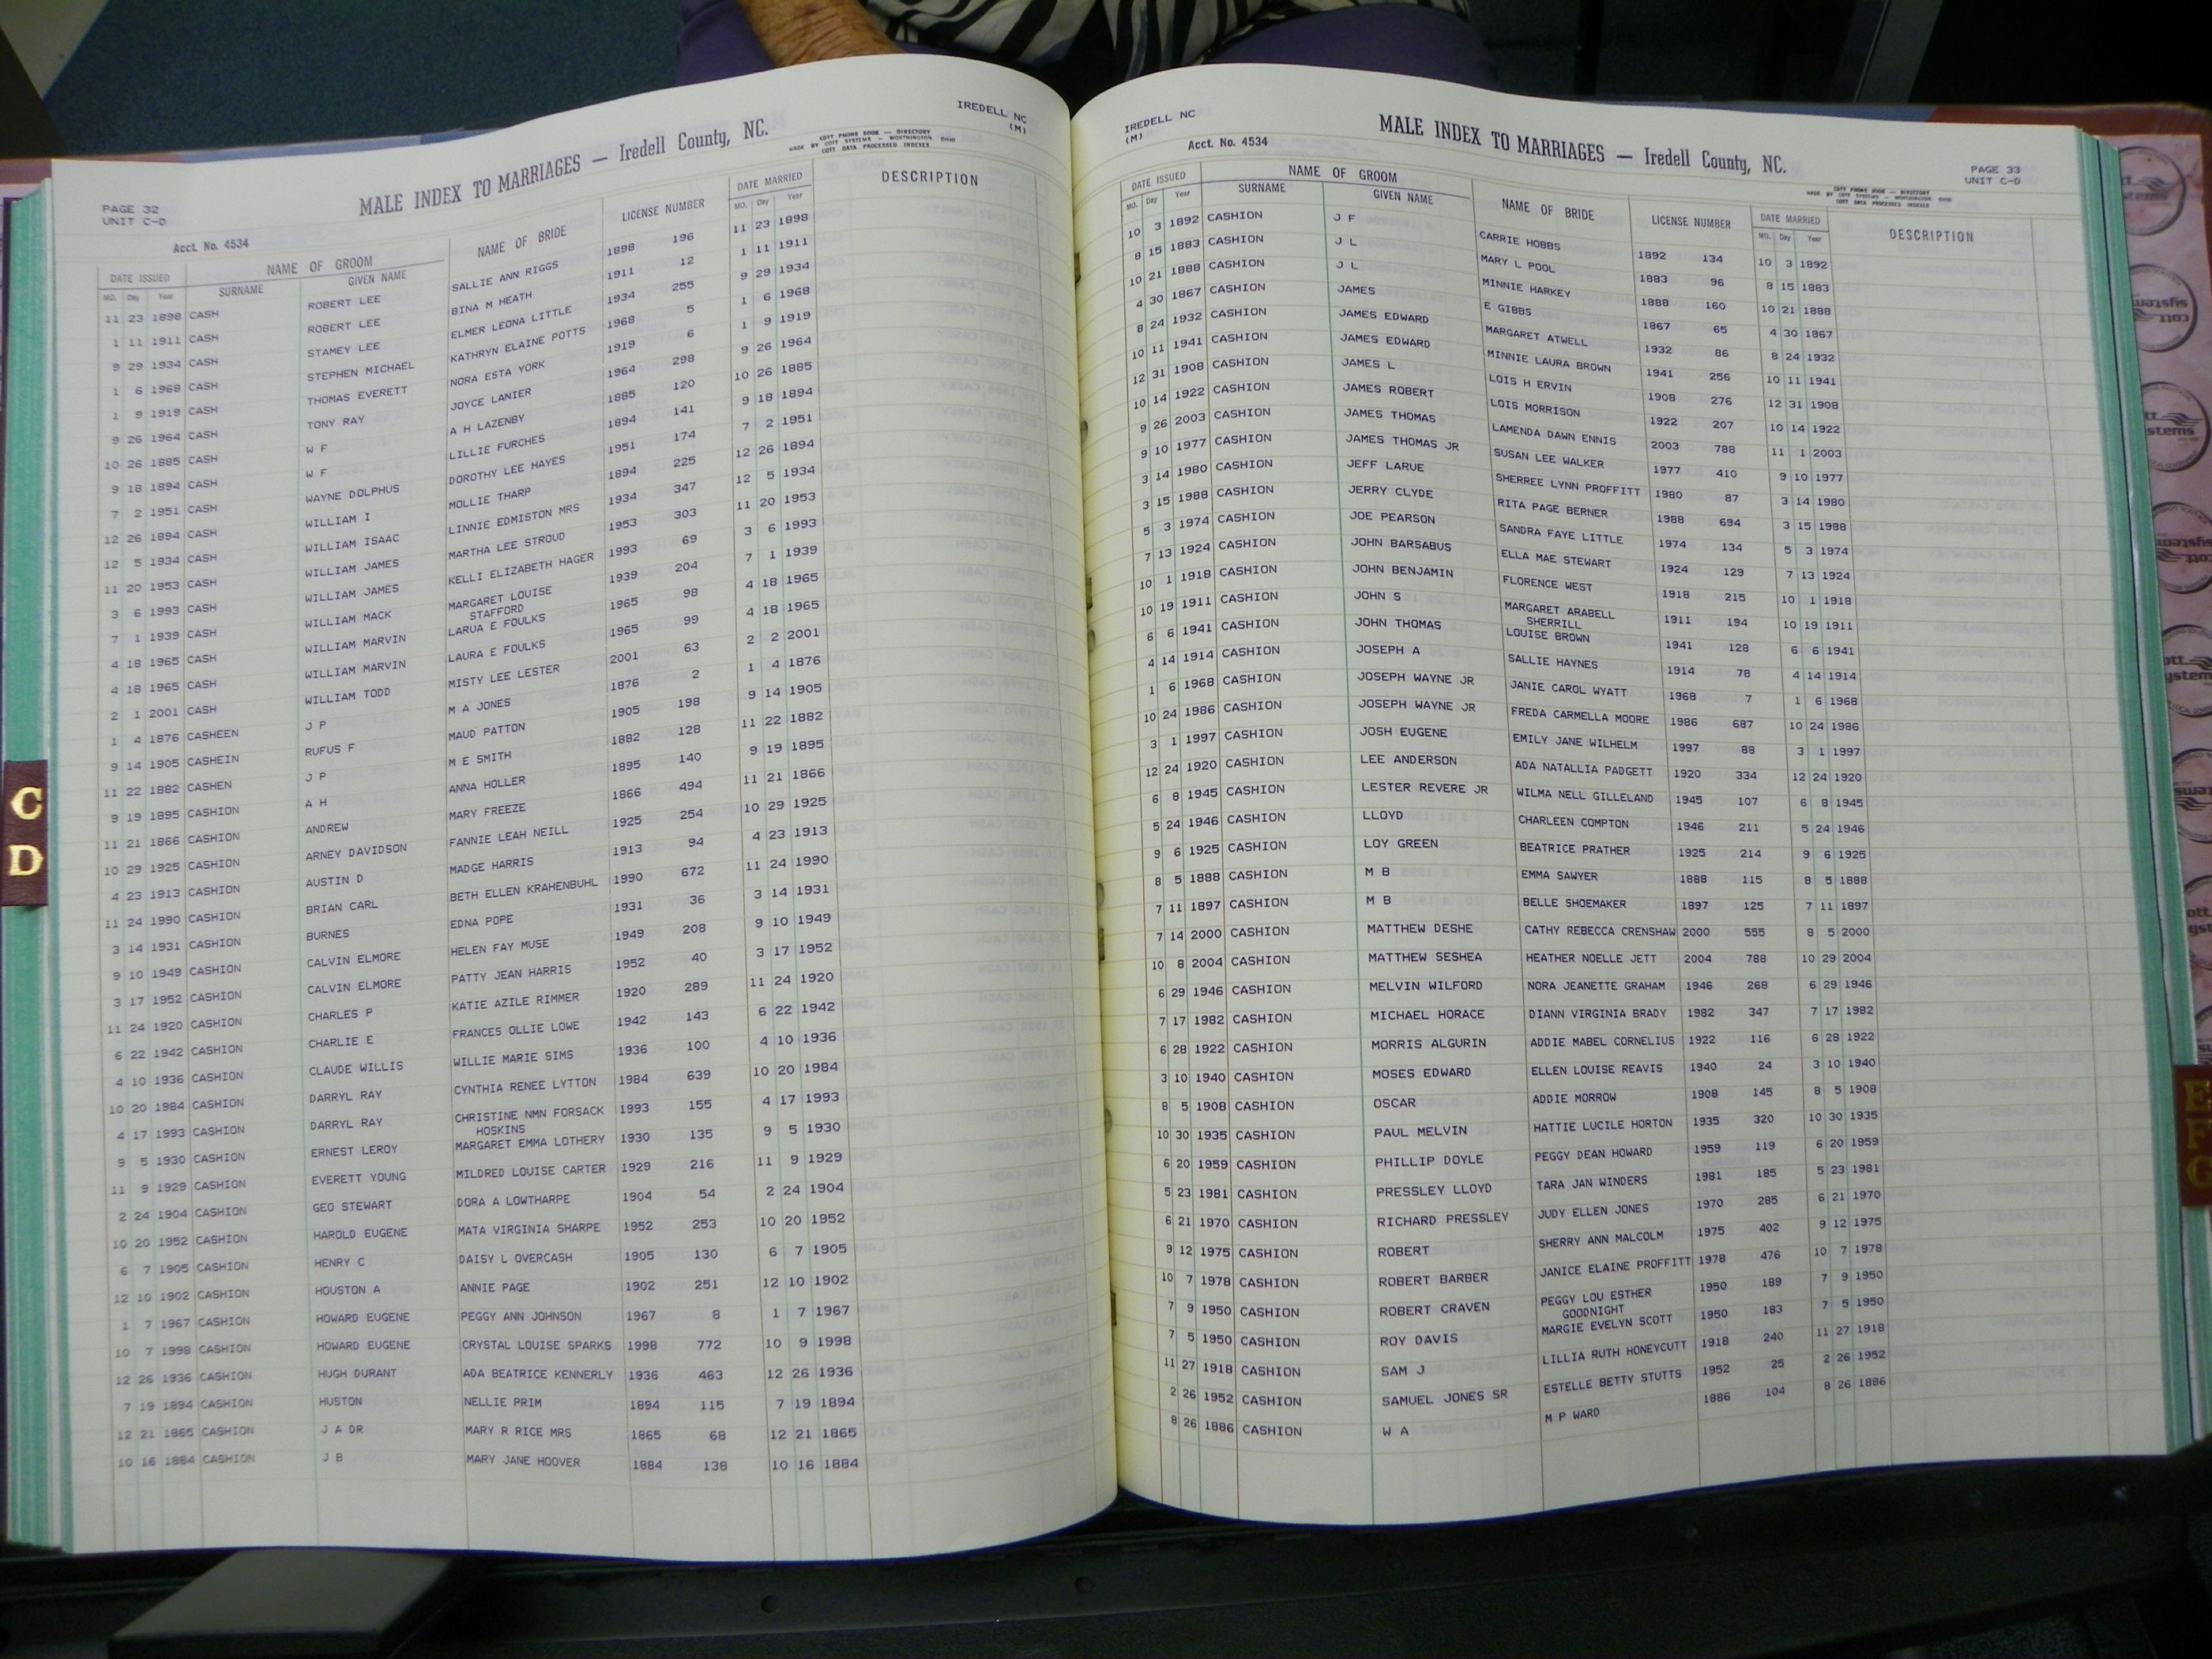 IREDELL NC
(M)
MALE INDEX TO MARRIAGES — Iredell County, NC.
COTT PHONE BOOK — DIRECTORY
MADE BY COTT SYSTEMS — WORTHINGTON, OHIO
COTT DATA PROCESSED INDEXES
PAGE 32
UNIT C-D
Acct. No. 4534
DATE ISSUED NAME OF GROOM NAME OF BRIDE LICENSE NUMBER DATE MARRIED DESCRIPTION
MO. Day Year SURNAME GIVEN NAME MO. Day Year
11 23 1898 CASH ROBERT LEE SALLIE ANN RIGGS 1898 196 11 23 1898
1 11 1911 CASH ROBERT LEE BINA M HEATH 1911 12 1 11 1911
9 29 1934 CASH STAMEY LEE ELMER LEONA LITTLE 1934 255 9 29 1934
1 6 1968 CASH STEPHEN MICHAEL KATHRYN ELAINE POTTS 1968 5 1 6 1968
1 9 1919 CASH THOMAS EVERETT NORA ESTA YORK 1919 6 1 9 1919
9 26 1964 CASH TONY RAY JOYCE LANIER 1964 298 9 26 1964
10 26 1885 CASH W F A H LAZENBY 1885 120 10 26 1885
9 18 1894 CASH W F LILLIE FURCHES 1894 141 9 18 1894
7 2 1951 CASH WAYNE DOLPHUS DOROTHY LEE HAYES 1951 174 7 2 1951
12 26 1894 CASH WILLIAM I MOLLIE THARP 1894 225 12 26 1894
12 5 1934 CASH WILLIAM ISAAC LINNIE EDMISTON MRS 1934 347 12 5 1934
11 20 1953 CASH WILLIAM JAMES MARTHA LEE STROUD 1953 303 11 20 1953
3 6 1993 CASH WILLIAM JAMES KELLI ELIZABETH HAGER 1993 69 3 6 1993
7 1 1939 CASH WILLIAM MACK MARGARET LOUISE 1939 204 7 1 1939
STAFFORD
4 18 1965 CASH WILLIAM MARVIN LARUA E FOULKS 1965 98 4 18 1965
4 18 1965 CASH WILLIAM MARVIN LAURA E FOULKS 1965 99 4 18 1965
2 1 2001 CASH WILLIAM TODD MISTY LEE LESTER 2001 63 2 2 2001
1 4 1876 CASHEEN J P M A JONES 1876 2 1 4 1876
9 14 1905 CASHEIN RUFUS F MAUD PATTON 1905 198 9 14 1905
11 22 1882 CASHEN J P M E SMITH 1882 128 11 22 1882
9 19 1895 CASHION A H ANNA HOLLER 1895 140 9 19 1895
11 21 1866 CASHION ANDREW MARY FREEZE 1866 494 11 21 1866
10 29 1925 CASHION ARNEY DAVIDSON FANNIE LEAH NEILL 1925 254 10 29 1925
4 23 1913 CASHION AUSTIN D MADGE HARRIS 1913 94 4 23 1913
11 24 1990 CASHION BRIAN CARL BETH ELLEN KRAHENBUHL 1990 672 11 24 1990
3 14 1931 CASHION BURNES EDNA POPE 1931 36 3 14 1931
9 10 1949 CASHION CALVIN ELMORE HELEN FAY MUSE 1949 208 9 10 1949
3 17 1952 CASHION CALVIN ELMORE PATTY JEAN HARRIS 1952 40 3 17 1952
11 24 1920 CASHION CHARLES P KATIE AZILE RIMMER 1920 289 11 24 1920
6 22 1942 CASHION CHARLIE E FRANCES OLLIE LOWE 1942 143 6 22 1942
4 10 1936 CASHION CLAUDE WILLIS WILLIE MARIE SIMS 1936 100 4 10 1936
10 20 1984 CASHION DARRYL RAY CYNTHIA RENEE LYTTON 1984 639 10 20 1984
4 17 1993 CASHION DARRYL RAY CHRISTINE NMN FORSACK 1993 155 4 17 1993
HOSKINS
9 5 1930 CASHION ERNEST LEROY MARGARET EMMA LOTHERY 1930 135 9 5 1930
11 9 1929 CASHION EVERETT YOUNG MILDRED LOUISE CARTER 1929 216 11 9 1929
2 24 1904 CASHION GEO STEWART DORA A LOWTHARPE 1904 54 2 24 1904
10 20 1952 CASHION HAROLD EUGENE MATA VIRGINIA SHARPE 1952 253 10 20 1952
6 7 1905 CASHION HENRY C DAISY L OVERCASH 1905 130 6 7 1905
12 10 1902 CASHION HOUSTON A ANNIE PAGE 1902 251 12 10 1902
1 7 1967 CASHION HOWARD EUGENE PEGGY ANN JOHNSON 1967 8 1 7 1967
10 7 1998 CASHION HOWARD EUGENE CRYSTAL LOUISE SPARKS 1998 772 10 9 1998
12 26 1936 CASHION HUGH DURANT ADA BEATRICE KENNERLY 1936 463 12 26 1936
7 19 1894 CASHION HUSTON NELLIE PRIM 1894 115 7 19 1894
12 21 1865 CASHION J A DR MARY R RICE MRS 1865 68 12 21 1865
10 16 1884 CASHION J B MARY JANE HOOVER 1884 138 10 16 1884
C
D
IREDELL NC
(M)
Acct. No. 4534
MALE INDEX TO MARRIAGES — Iredell County, NC.
PAGE 33
UNIT C-D
COTT PHONE BOOK — DIRECTORY
MADE BY COTT SYSTEMS — WORTHINGTON, OHIO
COTT DATA PROCESSED INDEXES
DATE ISSUED NAME OF GROOM NAME OF BRIDE LICENSE NUMBER DATE MARRIED DESCRIPTION
MO. Day Year SURNAME GIVEN NAME MO. Day Year
10 3 1892 CASHION J F CARRIE HOBBS 1892 134 10 3 1892
8 15 1883 CASHION J L MARY L POOL 1883 96 8 15 1883
10 21 1888 CASHION J L MINNIE HARKEY 1888 160 10 21 1888
4 30 1867 CASHION JAMES E GIBBS 1867 65 4 30 1867
8 24 1932 CASHION JAMES EDWARD MARGARET ATWELL 1932 86 8 24 1932
10 11 1941 CASHION JAMES EDWARD MINNIE LAURA BROWN 1941 256 10 11 1941
12 31 1908 CASHION JAMES L LOIS H ERVIN 1908 276 12 31 1908
10 14 1922 CASHION JAMES ROBERT LOIS MORRISON 1922 207 10 14 1922
9 26 2003 CASHION JAMES THOMAS LAMENDA DAWN ENNIS 2003 788 11 1 2003
9 10 1977 CASHION JAMES THOMAS JR SUSAN LEE WALKER 1977 410 9 10 1977
3 14 1980 CASHION JEFF LARUE SHERREE LYNN PROFFITT 1980 87 3 14 1980
3 15 1988 CASHION JERRY CLYDE RITA PAGE BERNER 1988 694 3 15 1988
5 3 1974 CASHION JOE PEARSON SANDRA FAYE LITTLE 1974 134 5 3 1974
7 13 1924 CASHION JOHN BARSABUS ELLA MAE STEWART 1924 129 7 13 1924
10 1 1918 CASHION JOHN BENJAMIN FLORENCE WEST 1918 215 10 1 1918
10 19 1911 CASHION JOHN S MARGARET ARABELL 1911 194 10 19 1911
SHERRILL
6 6 1941 CASHION JOHN THOMAS LOUISE BROWN 1941 128 6 6 1941
4 14 1914 CASHION JOSEPH A SALLIE HAYNES 1914 78 4 14 1914
1 6 1968 CASHION JOSEPH WAYNE JR JANIE CAROL WYATT 1968 7 1 6 1968
10 24 1986 CASHION JOSEPH WAYNE JR FREDA CARMELLA MOORE 1986 687 10 24 1986
3 1 1997 CASHION JOSH EUGENE EMILY JANE WILHELM 1997 88 3 1 1997
12 24 1920 CASHION LEE ANDERSON ADA NATALLIA PADGETT 1920 334 12 24 1920
6 8 1945 CASHION LESTER REVERE JR WILMA NELL GILLELAND 1945 107 6 8 1945
5 24 1946 CASHION LLOYD CHARLEEN COMPTON 1946 211 5 24 1946
9 6 1925 CASHION LOY GREEN BEATRICE PRATHER 1925 214 9 6 1925
8 5 1888 CASHION M B EMMA SAWYER 1888 115 8 5 1888
7 11 1897 CASHION M B BELLE SHOEMAKER 1897 125 7 11 1897
7 14 2000 CASHION MATTHEW DESHE CATHY REBECCA CRENSHAW 2000 555 8 5 2000
10 8 2004 CASHION MATTHEW SESHEA HEATHER NOELLE JETT 2004 788 10 29 2004
6 29 1946 CASHION MELVIN WILFORD NORA JEANETTE GRAHAM 1946 268 6 29 1946
7 17 1982 CASHION MICHAEL HORACE DIANN VIRGINIA BRADY 1982 347 7 17 1982
6 28 1922 CASHION MORRIS ALGURIN ADDIE MABEL CORNELIUS 1922 116 6 28 1922
3 10 1940 CASHION MOSES EDWARD ELLEN LOUISE REAVIS 1940 24 3 10 1940
8 5 1908 CASHION OSCAR ADDIE MORROW 1908 145 8 5 1908
10 30 1935 CASHION PAUL MELVIN HATTIE LUCILE HORTON 1935 320 10 30 1935
6 20 1959 CASHION PHILLIP DOYLE PEGGY DEAN HOWARD 1959 119 6 20 1959
5 23 1981 CASHION PRESSLEY LLOYD TARA JAN WINDERS 1981 185 5 23 1981
6 21 1970 CASHION RICHARD PRESSLEY JUDY ELLEN JONES 1970 285 6 21 1970
9 12 1975 CASHION ROBERT SHERRY ANN MALCOLM 1975 402 9 12 1975
10 7 1978 CASHION ROBERT BARBER JANICE ELAINE PROFFITT 1978 476 10 7 1978
7 9 1950 CASHION ROBERT CRAVEN PEGGY LOU ESTHER 1950 189 7 9 1950
GOODNIGHT
7 5 1950 CASHION ROY DAVIS MARGIE EVELYN SCOTT 1950 183 7 5 1950
11 27 1918 CASHION SAM J LILLIA RUTH HONEYCUTT 1918 240 11 27 1918
2 26 1952 CASHION SAMUEL JONES SR ESTELLE BETTY STUTTS 1952 25 2 26 1952
8 26 1886 CASHION W A M P WARD 1886 104 8 26 1886
E
F
G
cott
systems